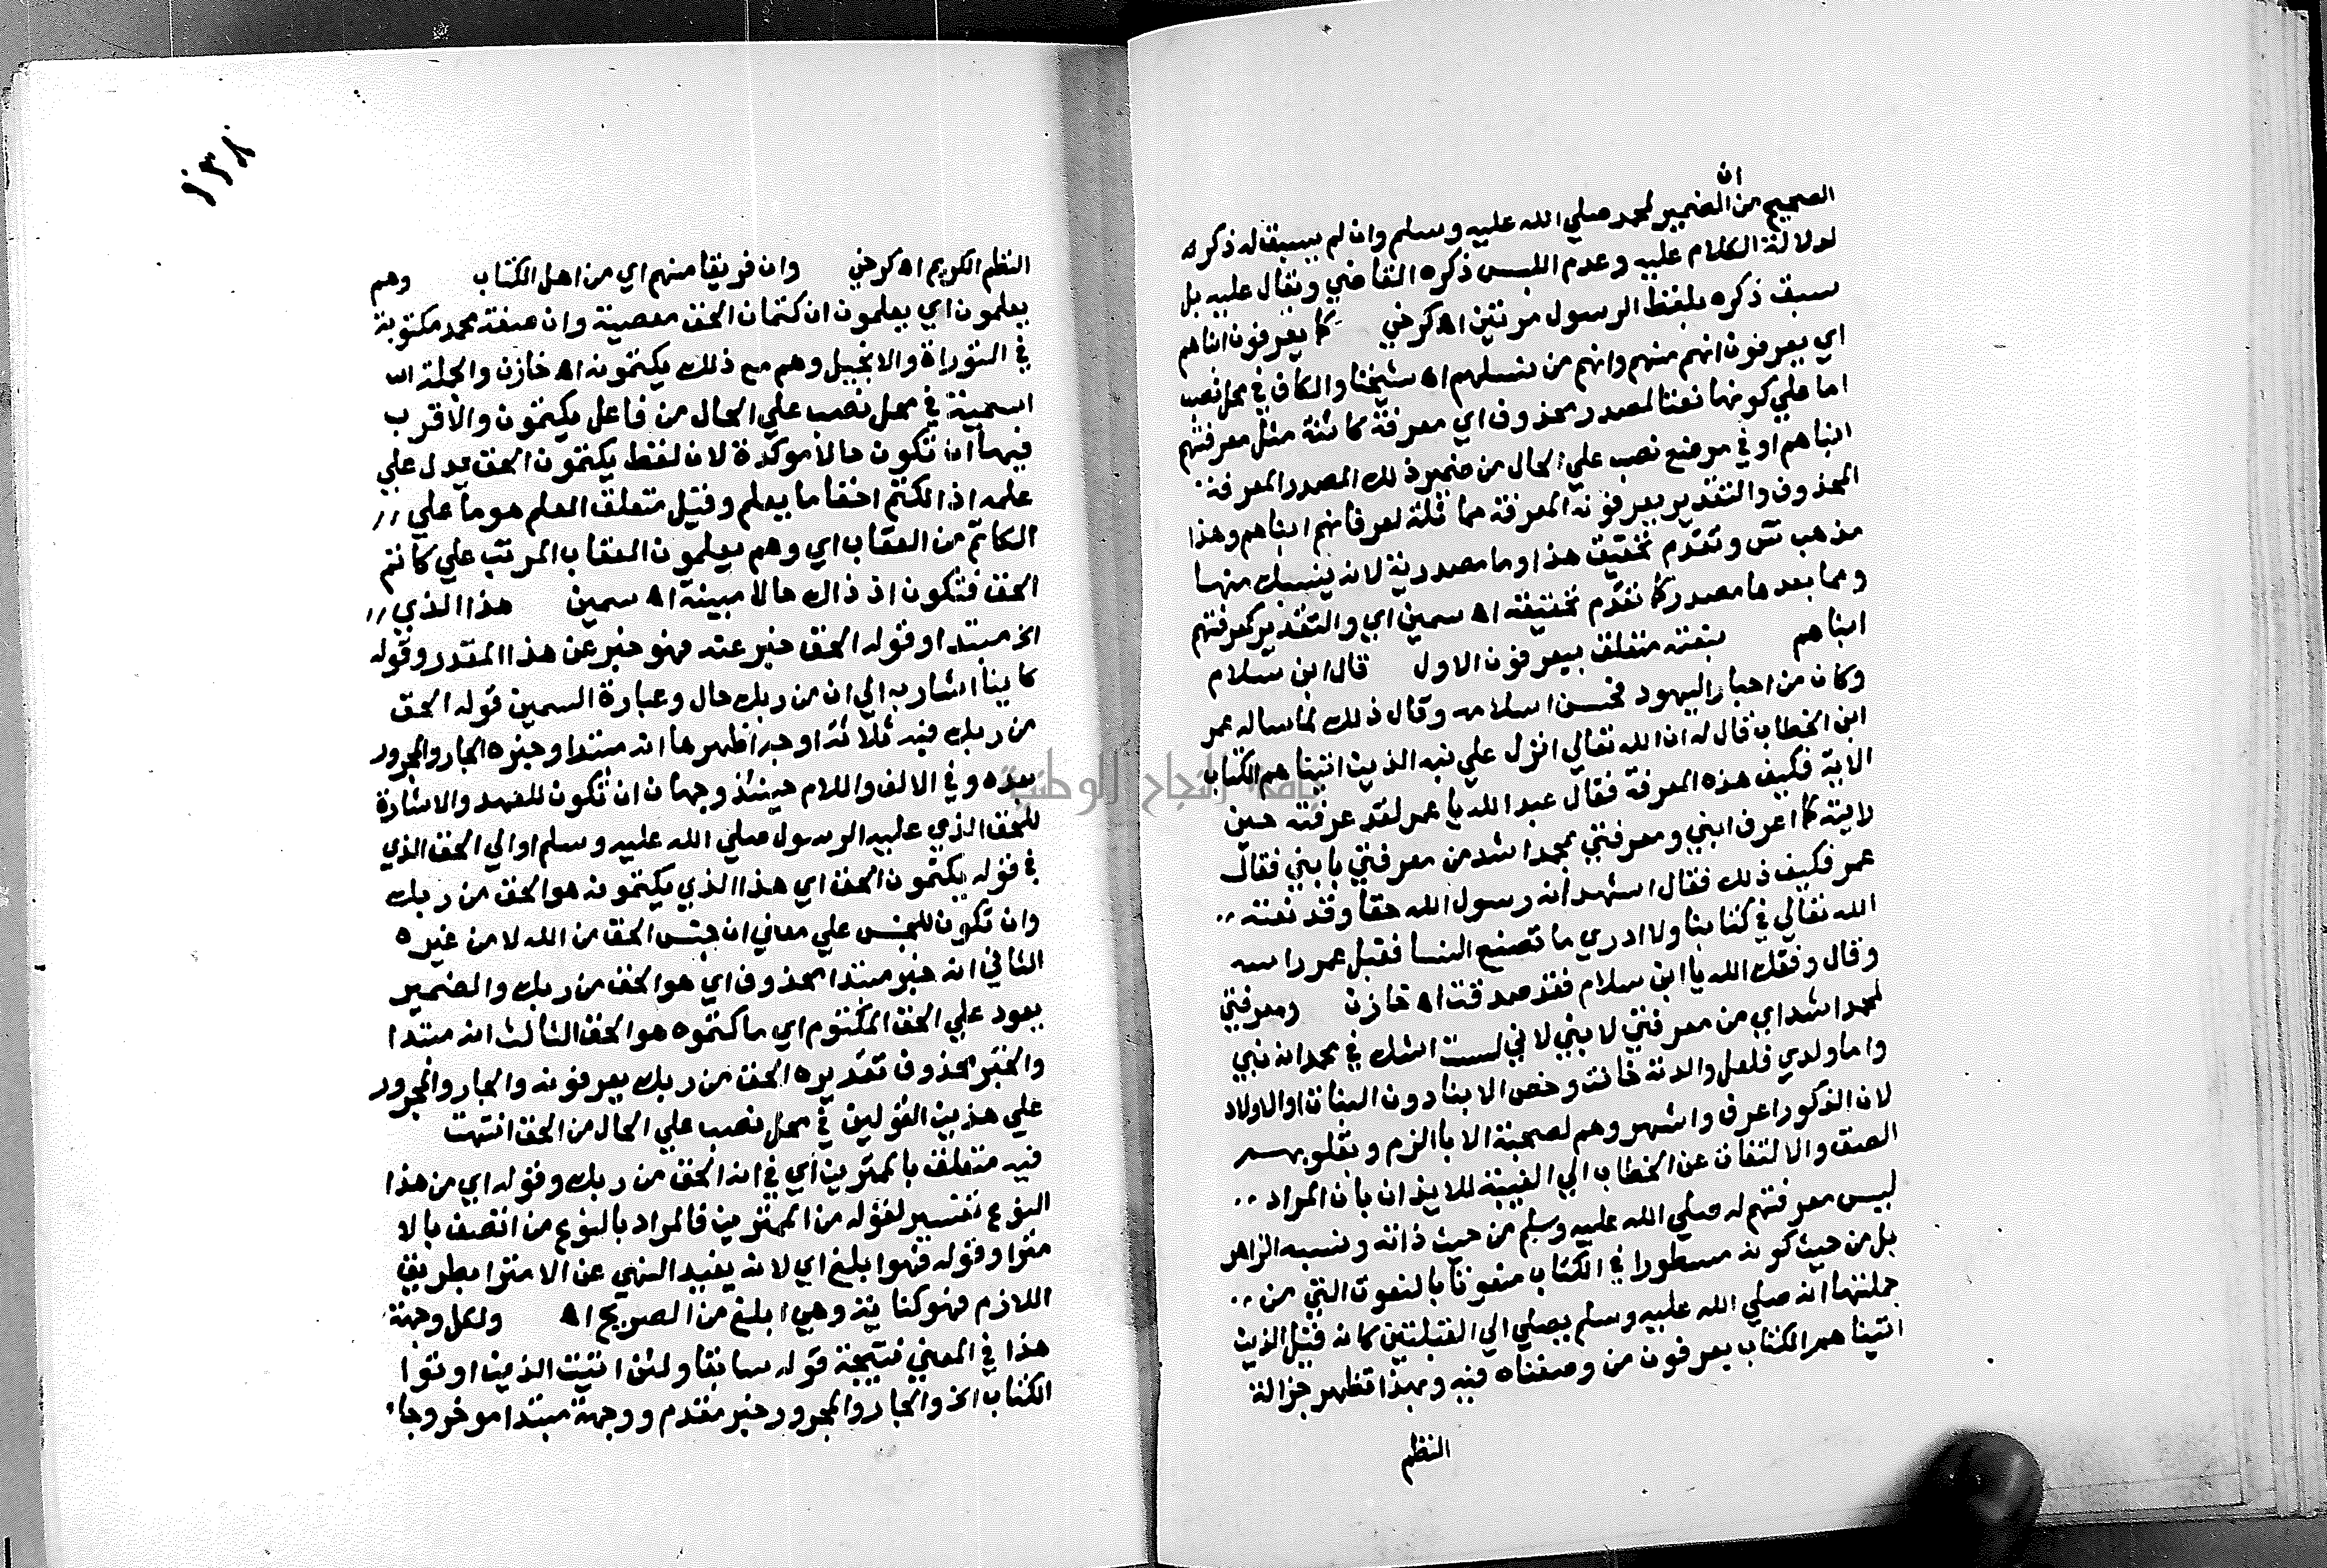 ان
الصحيح من الضمير لمحمد صلي الله عليه وسلم وان لم يسبق له ذكر ه
لدلالة الكلام عليه وعدم اللبس ذكره القاضي ونقال عليه بل
سبق ذكره بلفظ الرسول مرتين اه كرخي كما يعرفون ابناهم
اي يعرفون انهم منهم وانهم من نسلهم اه شيخنا والكاف في محل نصب
اما علي كونها نعتا لمصدر محذوف اي معرفة كائنة مثل معرفتهم
ابناهم او في موضع نصب علي الحال من ضمير ذلك المصدر المعرفة
المحذوف والتقدير يعرفونه المعرفة مماثلة لعرفانهم ابناهم وهذا
مذهب س وتقدم تحقيق هذا وما مصدرية لانه ينسبك منها
ومما بعدها مصدر كما تقدم تحقيقه اه سمين اي والتقدير كمعرفتهم
ابناهم بنعته متعلق بيعرفون الاول قال ابن سلام
وكان من احبار اليهود فحسن اسلامه وقال ذلك لما ساله عمر
ابن الخطاب قال له ان الله تعالي انزل علي نبيه الذين اتيناهم الكتاب
الاية فكيف هذه المعرفة فقال عبد الله يا عمر لقد عرفته حين
رايته كما اعرف ابني ومعرفتي بمحمد اشد من معرفتي بابني فقال
عمر فكيف ذلك فقال اشهد انه رسول الله حقا وقد نعته
الله تعالي في كتابنا ولا ادري ما تصنع النسا فقبل عمر راسه
وقال وفقك الله يا ابن سلام فقد صدقت اه خازن ومعرفتي
لمحمد اشد اي من معرفتي لابني لاني لست اشك في محمد انه نبي
واما ولدي فلعل والدته خانت وخص الابنا دون البنات او الاولاد
لان الذكور اعرف واشهر وهم لصحبة الابا الزم وبقلوبهم
الصق والالتفات عن الخطاب الي الغيبة للايذان بان المراد
ليس معرفتهم له صلي الله عليه وسلم من حيث ذاته ونسبه الزاهر
بل من حيث كونه مسطورا في الكتاب منعوتا بالنعوت التي من
جملتها انه صلي الله عليه وسلم يصلي الي القبلتين كانه قيل الذين
اتيناهم الكتاب يعرفون من وصفناه فيه وبهذا تظهر جزالة
النظم
١٣٨
النظم الكريم اه كرخي وان فريقا منهم اي من اهل الكتاب وهم
يعلمون اي يعلمون ان كتمان الحق معصية وان صفة محمد مكتوبة
في التوراة والانجيل وهم مع ذلك يكتمونه اه خازن والجملة الا
اسمية في محل نصب علي الحال من فاعل يكتمون والاقرب
فيها ان تكون حالا موكدة لان لفظ يكتمون الحق يدل علي
علمه اذ الكتم اخفا ما يعلم وقيل متعلق العلم هو ما علي
الكاتم من العقاب اي وهم يعلمون العقاب المرتب علي كاتم
الحق فتكون اذ ذاك حالا مبينة اه سمين هذا الذي
الخ مبتدا وقوله الحق خبر عنه فهو خبر عن هذا المقدر وقوله
كاينا اشار به الي ان من ربك حال وعبارة السمين قوله الحق
من ربك فيه ثلاثة اوجه اظهرها انه مبتدا وخبره الجار والمجرور
بعده وفي الالف واللام حينئذ وجهان ان تكون للعهد والاشارة
للحق الذي عليه الرسول صلي الله عليه وسلم او الي الحق الذي
في قوله يكتمون الحق اي هذا الذي يكتمونه هو الحق من ربك
وان تكون للجنس علي معاني ان جنس الحق من الله لا من غيره
الثاني انه خبر مبتدا محذوف اي هو الحق من ربك والضمير
يعود علي الحق المكتوم اي ما كتموه هو الحق الثالث انه مبتدا
والخبر محذوف تقديره الحق من ربك يعرفونه والجار والمجرور
علي هذين القولين في محل نصب علي الحال من الحق انتهت
فيه متعلق بالممترين اي في انه الحق من ربك وقوله اي من هذا
النوع تفسير لقوله من الممترين فالمراد بالنوع من اتصف بالا
متزا وقوله فهوا بلغ اي لانه يفيد النهي عن الامترا بطريق
اللازم فهو كناية وهي ابلغ من الصريح اه ولكل وجهة
هذا في المعني نتيجة قوله سابقا ولئن اتيت الذين اوتوا
الكتاب الخ والجار والمجرور خبر مقدم ووجهة مبتدا موخر وجا
جامعة النجاح الوطنية